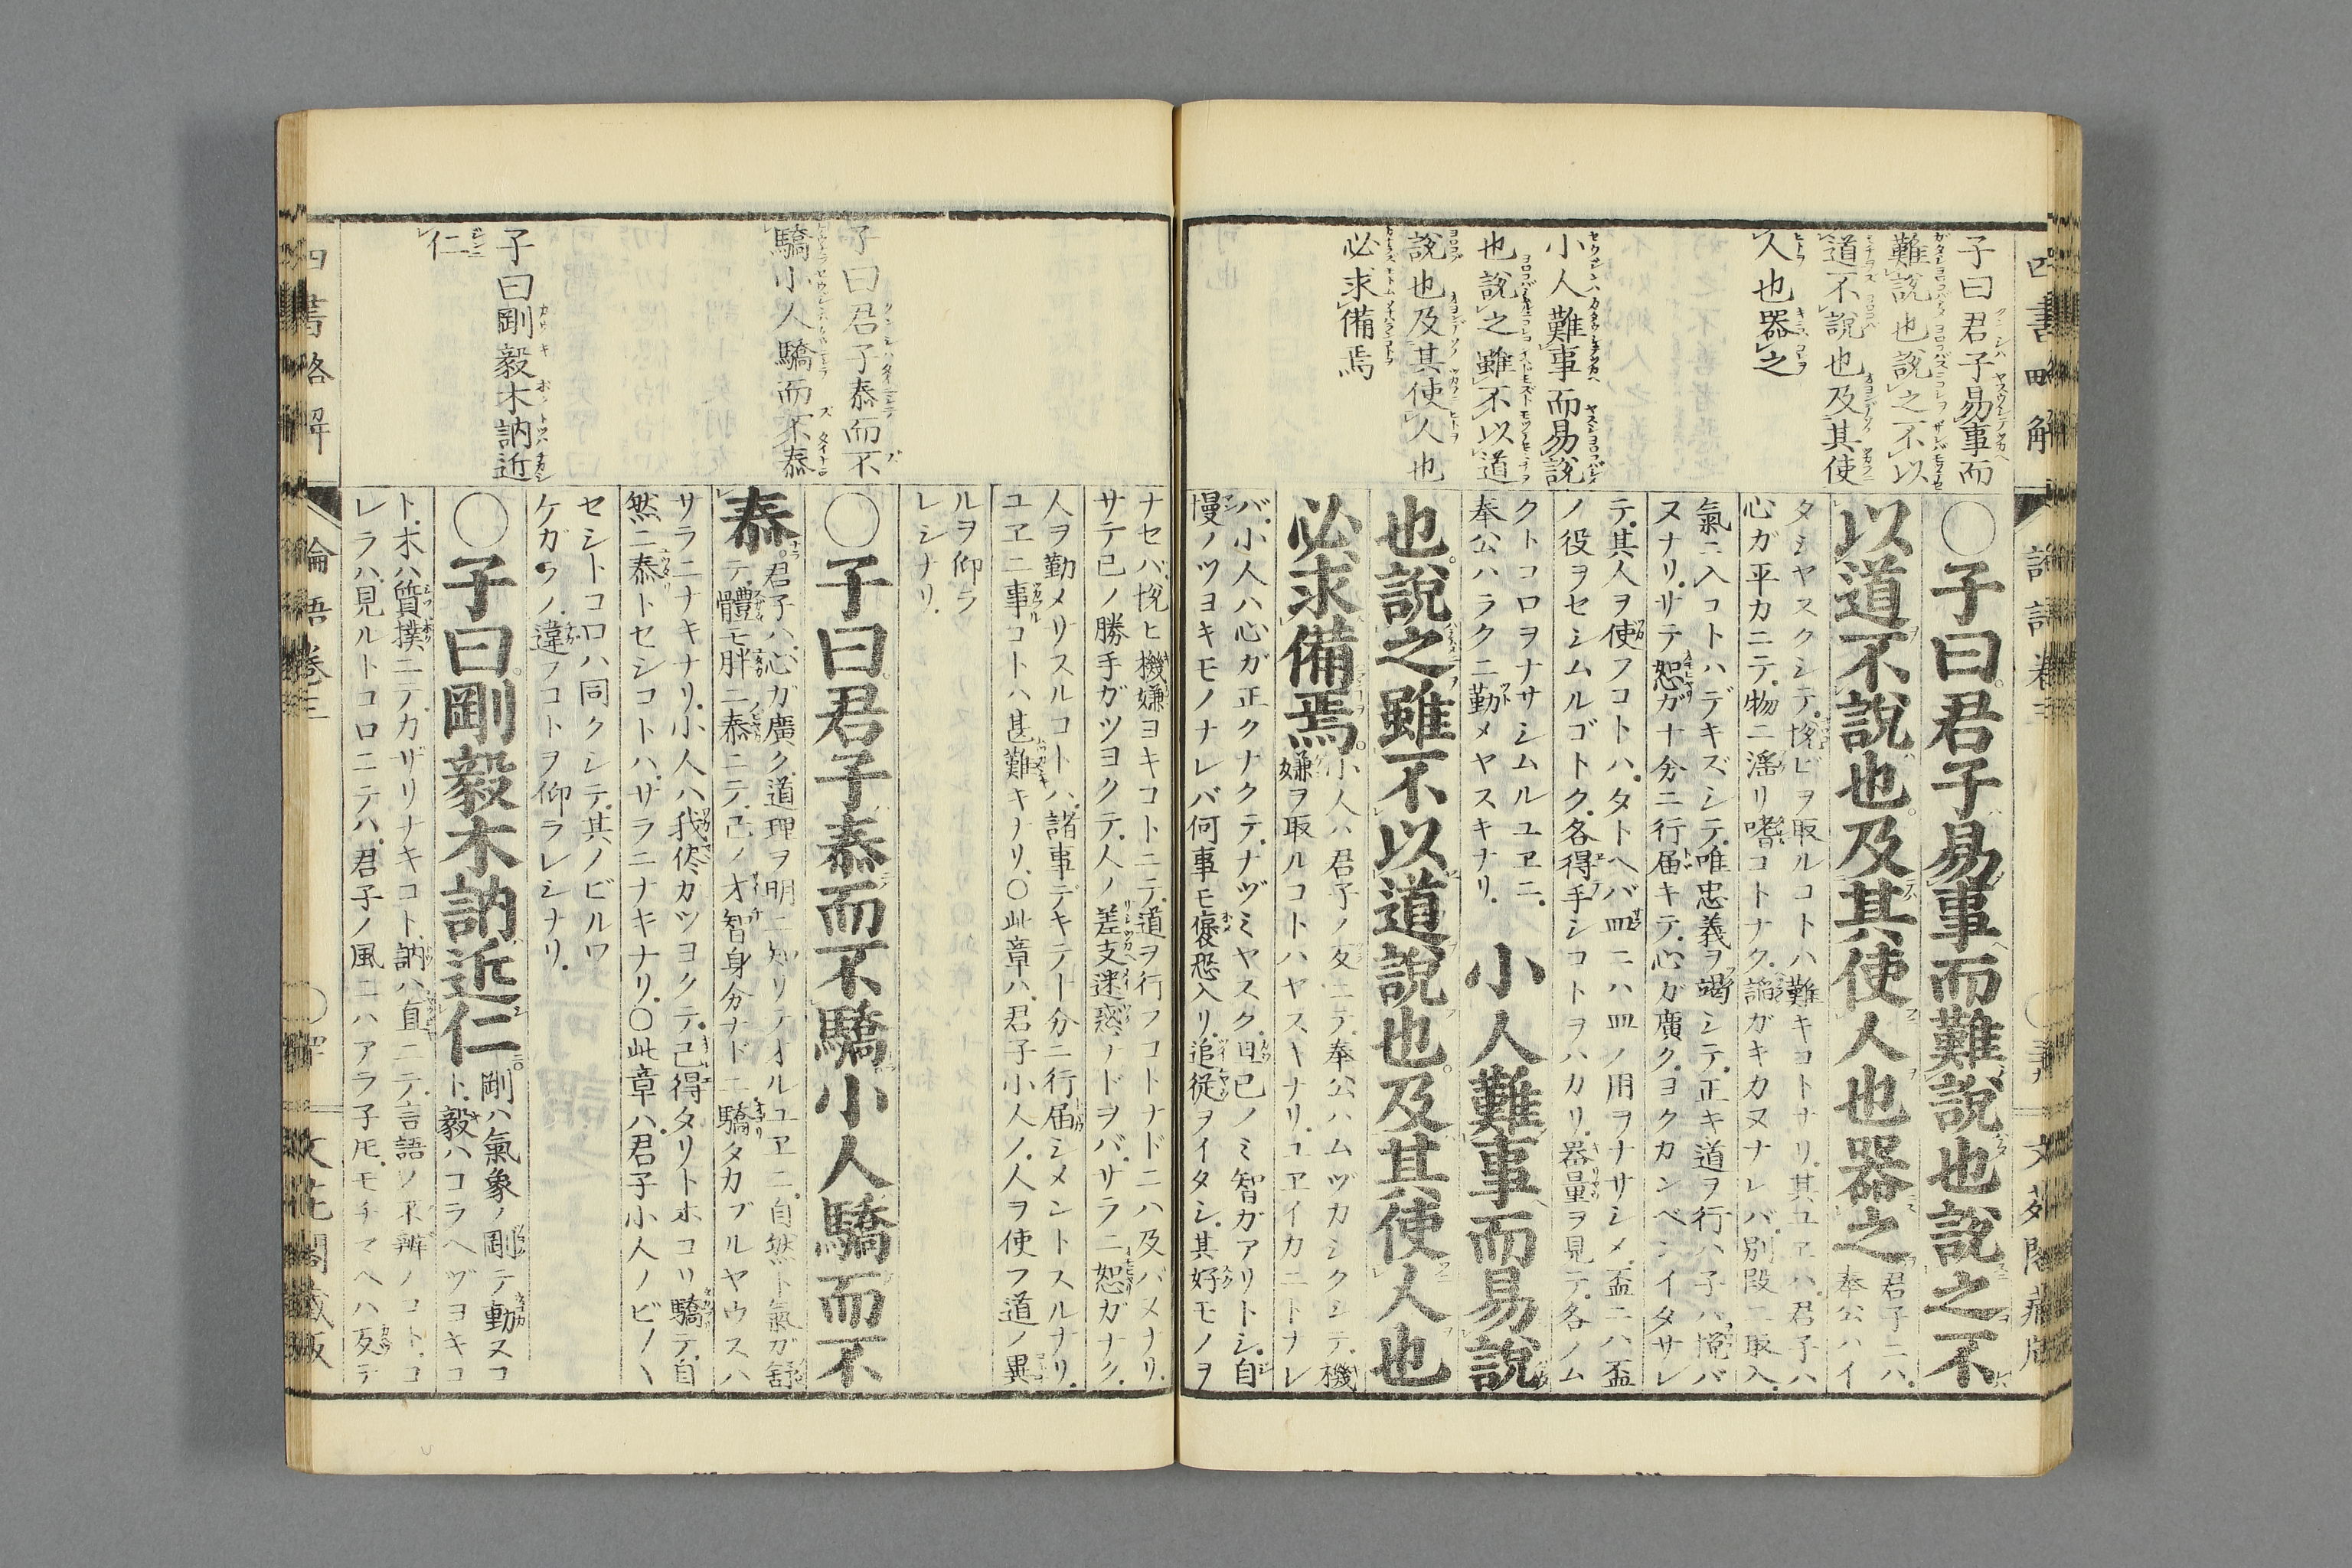 子曰君子易事而
難說也說之不以
道不說也及其使
人也器之
小人難事而易說
也說之雖不以道
說也及其使人也
必求備焉
〇子曰君子易事而難說也說之不
以道不說也及其使人也器之
君子ニハ
奉公ハイ
タシヤスクシテ悅ビヲ取ルコトハ難キコトナリ其ユヱハ君子ハ
心ガ平カニテ物ニ淫リ嗜コトナク諂ガキカヌナレバ別段ニ取入
氣ニ入コトハデキズシテ唯忠義ヲ竭シテ正キ道ヲ行ハ子ハ悅バ
ヌナリサテ恕ガ十分ニ行届キテ心ガ廣クヨクカンベンイタサレ
テ其人ヲ使フコトハタトヘバ皿ニハ皿ノ用ヲナサシメ盃ニハ盃
ノ役ヲセシムルゴトク各得手シコトヲハカリ器量ヲ見テ各ノム
クトコロヲナサシムルユヱニ
奉公ハラクニ勤メヤスキナリ
小人難事而易說
也說之雖不以道說也及其使人也
必求備焉
小人ハ君子ノ反ニテ奉公ハムヅカシクシテ機
嫌ヲ取ルコトハヤスキナリユヱイカニトナレ
バ小人ハ心ガ正クナクテナヅミヤスク且己ノミ智ガアリトシ自
慢ノツヨキモノナレバ何事モ褒恐入リ追従ヲイタシ其好モノヲ
ナセバ悅ヒ機嫌ヨキコトニテ道ヲ行フコトナドニハ及バヌナリ
サテ己ノ勝手ガツヨクテ人ノ差支迷惑ノドヲバサラニ恕ガナク
人ヲ勤メリスルコトハ諸事デキテ十分ニ行届シメントスルナリ
ユヱニ事コトハ甚難キナリ〇此章ハ君子小人ノ人ヲ使フ道ノ異
ルヲ仰ラ
レシナリ
子曰君子泰而不
驕小人驕而不泰
〇子曰君子泰而不驕小人驕而不
泰
君子ハ心ガ廣ク道理ヲ明ニ知リテオルユヱニ自然ト氣ガ舒
テ體モ胖ニ泰ニテ己ノ才智身分ナドニ驕タカブルヤウスハ
サラニナキナリ小人ハ我侭カツヨクテ己得タリトホコリ驕テ自
然ニ泰トセシコトハサラニナキナリ〇此章ハ君子小人ノビノヽ
セシトコロハ同クシテ其ノビルワ
ケガラノ違フコトヲ仰ラレシナリ
子曰剛毅木訥近
仁
〇子曰剛毅木訥近仁
剛ハ氣象ノ剛テ動ヌコ
ト毅ハコラヘヅヨキコ
ト木ハ質撲ニテカザリナキコト訥ハ直ニテ言語ノ不辨ノコトコ
レラハ見ルトコロニテハ君子ノ風ニハアラ子𪜈モチマヘハ反テ
四書略解
論語卷三
文花閣藏板